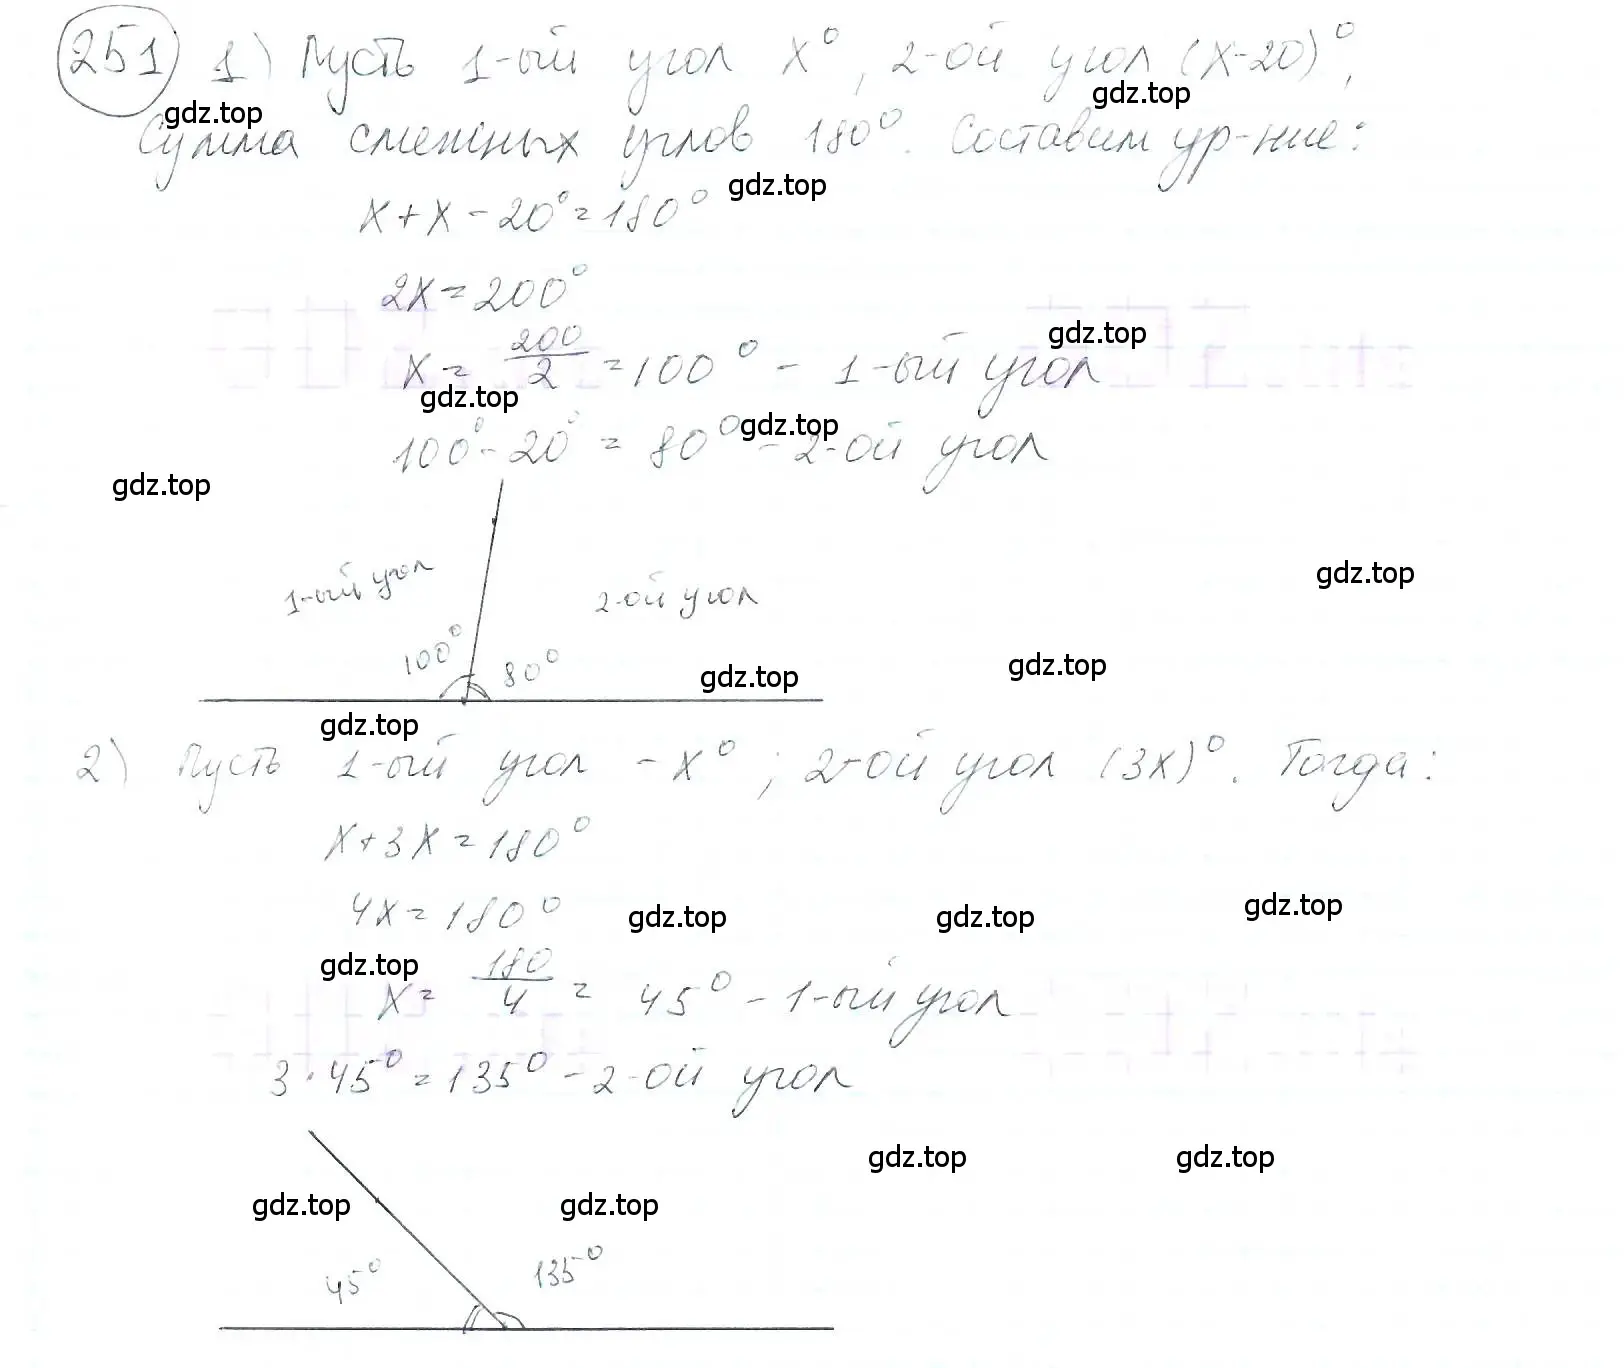 251 1) Пусть 1-ый угол x°, 2-ой угол (x-20)°,
gdz.top gdz.top
Сумма смежных углов 180°. Составим ур-ние:
gdz.top
x+x-20°=180°
2x=200°
gdz.top
x= 200/2 =100° - 1-ый угол
gdz.top gdz.top
100°-20° = 80° - 2-ой угол
gdz.top
1-ый угол 2-ой угол gdz.top
100° 80° gdz.top gdz.top
gdz.top
2) Пусть 1-ый угол - x°; 2-ой угол (3x)°. Тогда:
x+3x=180°
4x=180° gdz.top gdz.top gdz.top
gdz.top
x= 180/4 = 45° - 1-ый угол
3·45°=135° - 2-ой угол
gdz.top gdz.top
gdz.top gdz.top
45° 135°